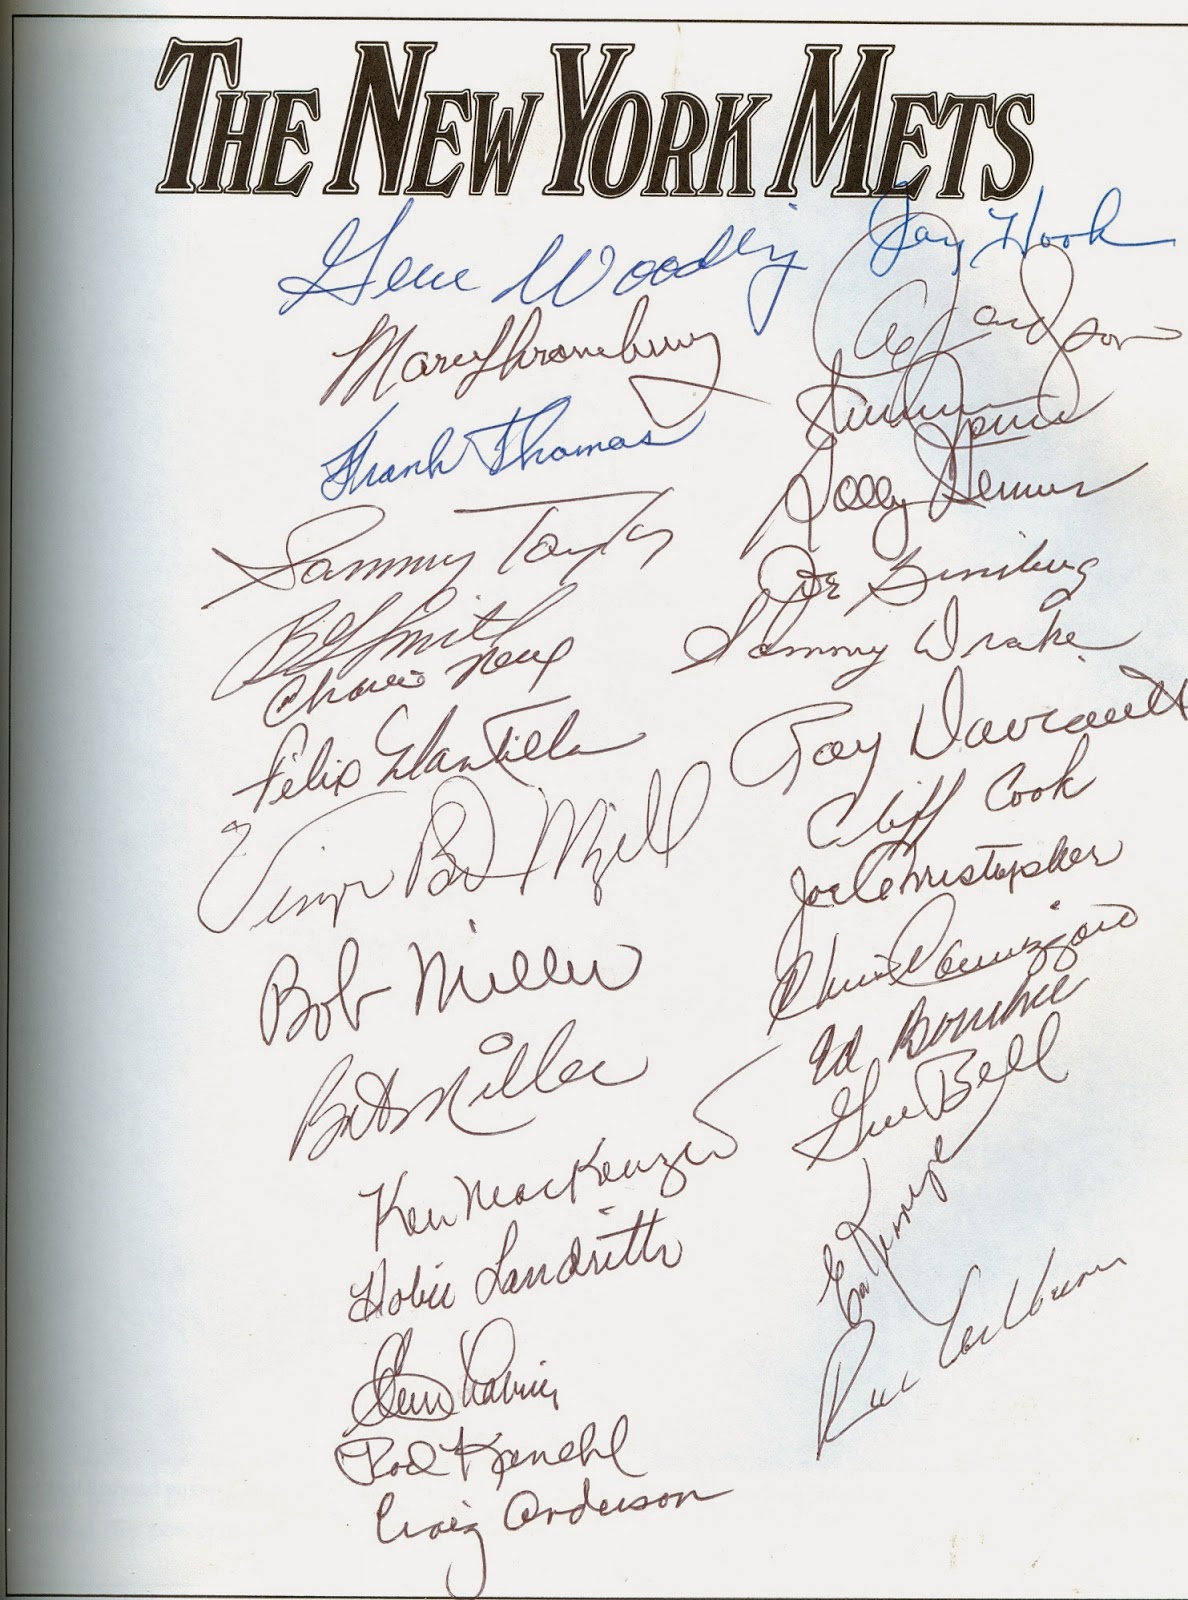 THE NEW YORK METS
Gene Woodling
Jay Hook
Marv Throneberry
Al Jackson
Frank Thomas
Solly Hemus
Sammy Taylor
Joe Ginsberg
Bill Smith
Sammy Drake
Charlie Neal
Felix Mantilla
Ray Daviault
Cliff Cook
Vinegar Bend Mizell
Joe Christopher
Bob Miller
Chris Cannizzaro
Ed Bouchee
Bob Miller
Gus Bell
Ken MacKenzie
Ed Kranepool
Hobie Landrith
Clem Labine
Rod Kanehl
Craig Anderson